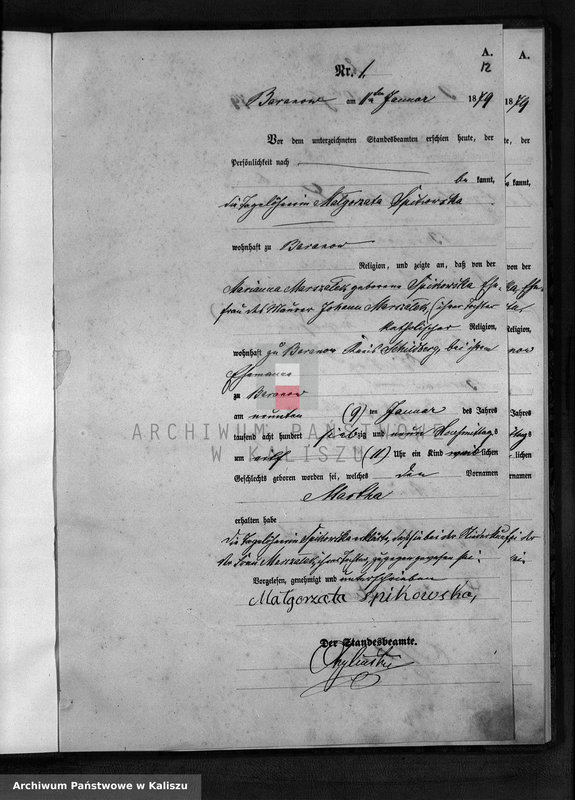 A.
12
Nr. 1.
Baranow am ten Januar 1879
Vor dem unterzeichneten Standesbeamten erschien heute, der
Persönlichkeit nach
be kannt,
die Tagelöhnerin Małgorzata Spikowska
wohnhaft zu Baranow
Religion, und zeigte an, daß von der
Marianna Marszałek geborene Spikowska Ehe-
frau des Maurer Johann Marszałek, (ihrer Tochter
katholischer Religion,
wohnhaft zu Baranow Kreis Schildberg, bei ihrem
Ehemanne
zu Baranow
am neunten (9) ten Januar des Jahres
tausend acht hundert siebzig und neun Nachmittags
um elf (11) Uhr ein Kind weiblichen
Geschlechts geboren worden sei, welches den Vornamen
Martha
erhalten habe
Die Tagelöhnerin Spikowska erklärte, daß sie bei der Niederkunft
der Frau Marszałek, ihrer Tochter, zugegen gewesen sei.
Vorgelesen, genehmigt und unterschrieben
Małgorzata Spikowska,
Der Standesbeamte.
A.
1879
te, der
kannt,
von der
Religion,
Jahres
lichen
rnamen
ARCHIWUM PAŃSTWOWE
W KALISZU
Archiwum Państwowe w Kaliszu